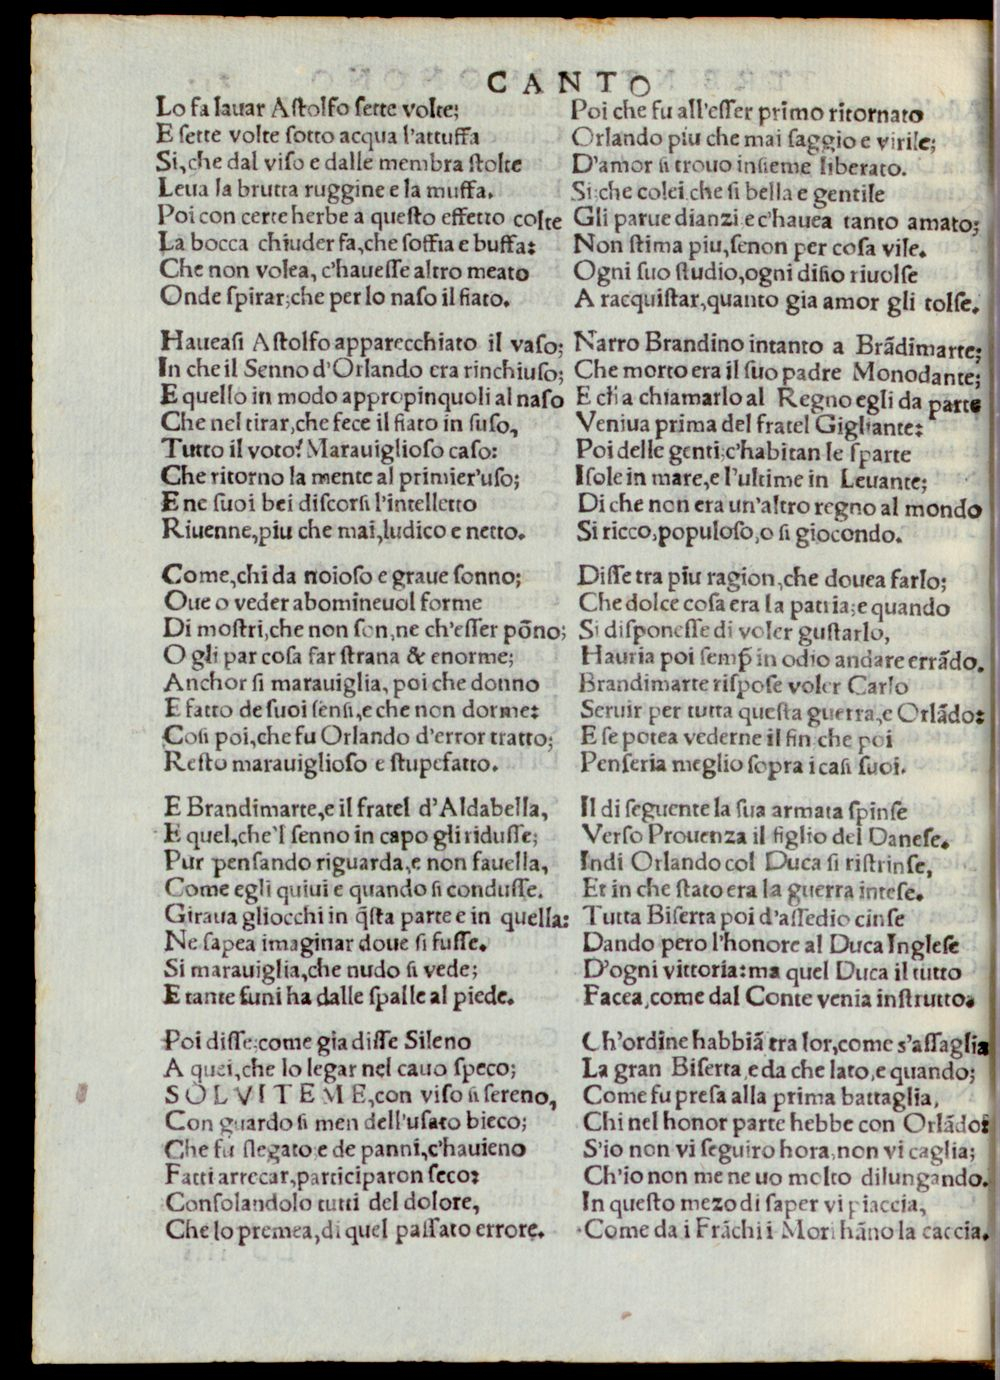 CANTO
Lo fa lauar Astolfo sette volte;
E sette volte sotto acqua l'attuffa
Si, che dal viso e dalle membra stolte
Leua la brutta ruggine e la muffa.
Poi con certe herbe a questo effetto colte
La bocca chiuder fa, che soffia e buffa:
Che non volea, c'hauesse altro meato
Onde spirar; che per lo naso il fiato.
Haueasi Astolfo apparecchiato il vaso;
In che il Senno d'Orlando era rinchiuso;
E quello in modo appropinquoli al naso
Che nel tirar, che fece il fiato in suso,
Tutto il voto: Marauiglioso caso:
Che ritorno la mente al primier'uso;
E ne suoi bei discorsi l'intelletto
Riuenne, piu che mai, ludico e netto.
Come, chi da noioso e graue sonno;
Oue o veder abomineuol forme
Di mostri, che non son, ne ch'esser põno;
O gli par cosa far strana & enorme;
Anchor si marauiglia, poi che donno
E fatto de suoi sensi, e che non dorme:
Cosi poi, che fu Orlando d'error tratto;
Resto marauiglioso e stupefatto.
E Brandimarte, e il fratel d'Aldabella,
E quel, che'l senno in capo gli ridusse;
Pur pensando riguarda, e non fauella,
Come egli quiui e quando si condusse.
Giraua gliocchi in q̃sta parte e in quella:
Ne sapea imaginar doue si fusse.
Si marauiglia, che nudo si vede;
E tante funi ha dalle spalle al piede.
Poi disse; come gia disse Sileno
A quei, che lo legar nel cauo speco;
SOLVITE ME, con viso si sereno,
Con guardo si men dell'usato bieco;
Che fu slegato; e de panni, c'hauieno
Fatti arrecar, participaron seco:
Consolandolo tutti del dolore,
Che lo premea, di quel passato errore.
Poi che fu all'esser primo ritornato
Orlando piu che mai saggio e virile;
D'amor si trouo insieme liberato.
Si che colei che si bella e gentile
Gli parue dianzi e c'hauea tanto amato;
Non stima piu, senon per cosa vile.
Ogni suo studio, ogni disio riuolse
A racquistar, quanto gia amor gli tolse.
Narro Brandino intanto a Brãdimarte;
Che morto era il suo padre Monodante;
E ch a chiamarlo al Regno egli da parte
Veniua prima del fratel Gigliante:
Poi delle genti; c'habitan le sparte
Isole in mare, e l'ultime in Leuante;
Di che non era un'altro regno al mondo
Si ricco, populoso, o si giocondo.
Disse tra piu ragion, che douea farlo;
Che dolce cosa era la patria; e quando
Si disponesse di voler gustarlo,
Hauria poi semp̃ in odio andare errãdo.
Brandimarte rispose voler Carlo
Seruir per tutta questa guerra, e Orlãdo:
E se potea vederne il fin; che poi
Penseria meglio sopra i casi suoi.
Il di seguente la sua armata spinse
Verso Prouenza il figlio del Danese.
Indi Orlando col Duca si ristrinse,
Et in che stato era la guerra intese.
Tutta Biserta poi d'assedio cinse
Dando pero l'honore al Duca Inglese
D'ogni vittoria: ma quel Duca il tutto
Facea, come dal Conte venia instrutto.
Ch'ordine habbiã tra lor, come s'assaglia
La gran Biserta, e da che lato, e quando;
Come fu presa alla prima battaglia,
Chi nel honor parte hebbe con Orlãdo:
S'io non vi seguiro hora, non vi caglia;
Ch'io non me ne uo molto dilungando.
In questo mezo di saper vi piaccia,
Come da i Frãchi i Mori hãno la caccia.